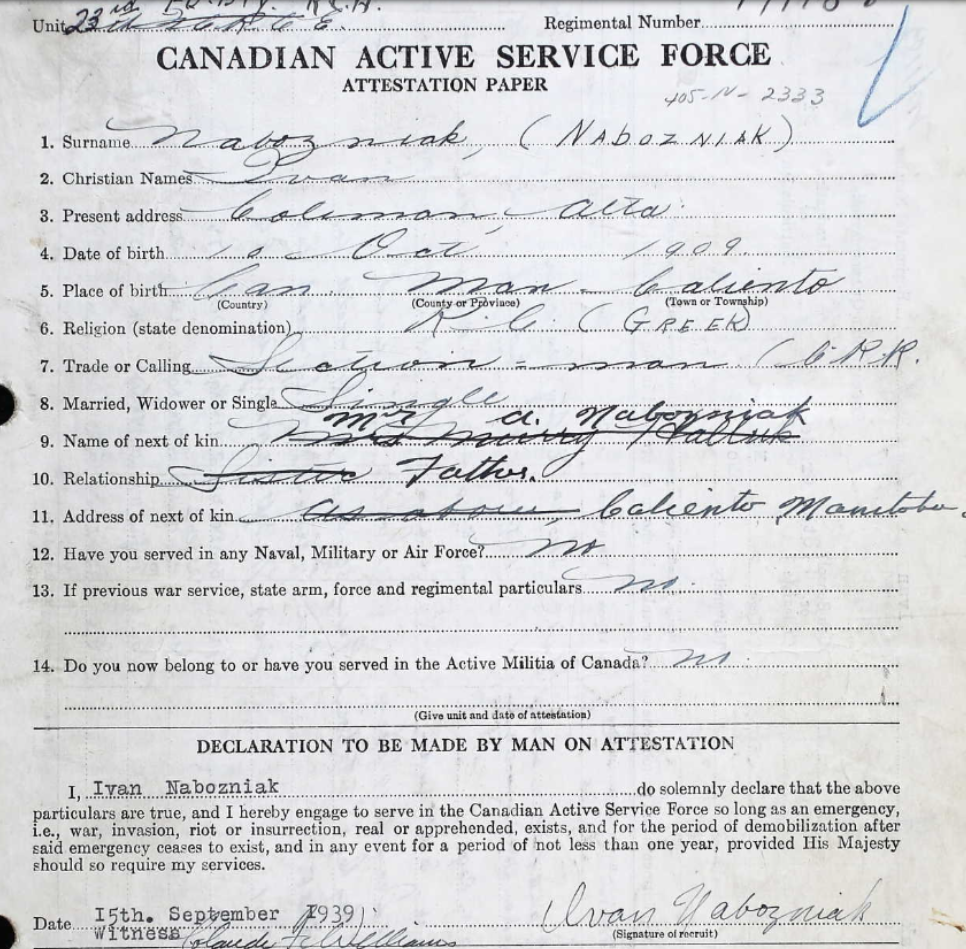 Unit 23rd
Regimental Number
CANADIAN ACTIVE SERVICE FORCE
ATTESTATION PAPER
405-N-2333
1. Surname Nabozniak, (NABOZNIAK)
2. Christian Names Ivan
3. Present address Coleman, Alta
4. Date of birth 10 Oct 1909
5. Place of birth Can. Man - Caliento
(Country) (County or Province) (Town or Township)
6. Religion (state denomination) R.C. (GREEK)
7. Trade or Calling Section-man (C.P.R.
8. Married, Widower or Single Single
Mr A. Nabozniak
9. Name of next of kin Mrs
10. Relationship Sister Father.
11. Address of next of kin As above, Caliento, Manitoba.
12. Have you served in any Naval, Military or Air Force? no
13. If previous war service, state arm, force and regimental particulars no.
14. Do you now belong to or have you served in the Active Militia of Canada? no.
(Give unit and date of attestation)
DECLARATION TO BE MADE BY MAN ON ATTESTATION
I, Ivan Nabozniak do solemnly declare that the above
particulars are true, and I hereby engage to serve in the Canadian Active Service Force so long as an emergency,
i.e., war, invasion, riot or insurrection, real or apprehended, exists, and for the period of demobilization after
said emergency ceases to exist, and in any event for a period of not less than one year, provided His Majesty
should so require my services.
Date 15th. September 1939 Ivan Nabozniak
Witness Williams (Signature of recruit)